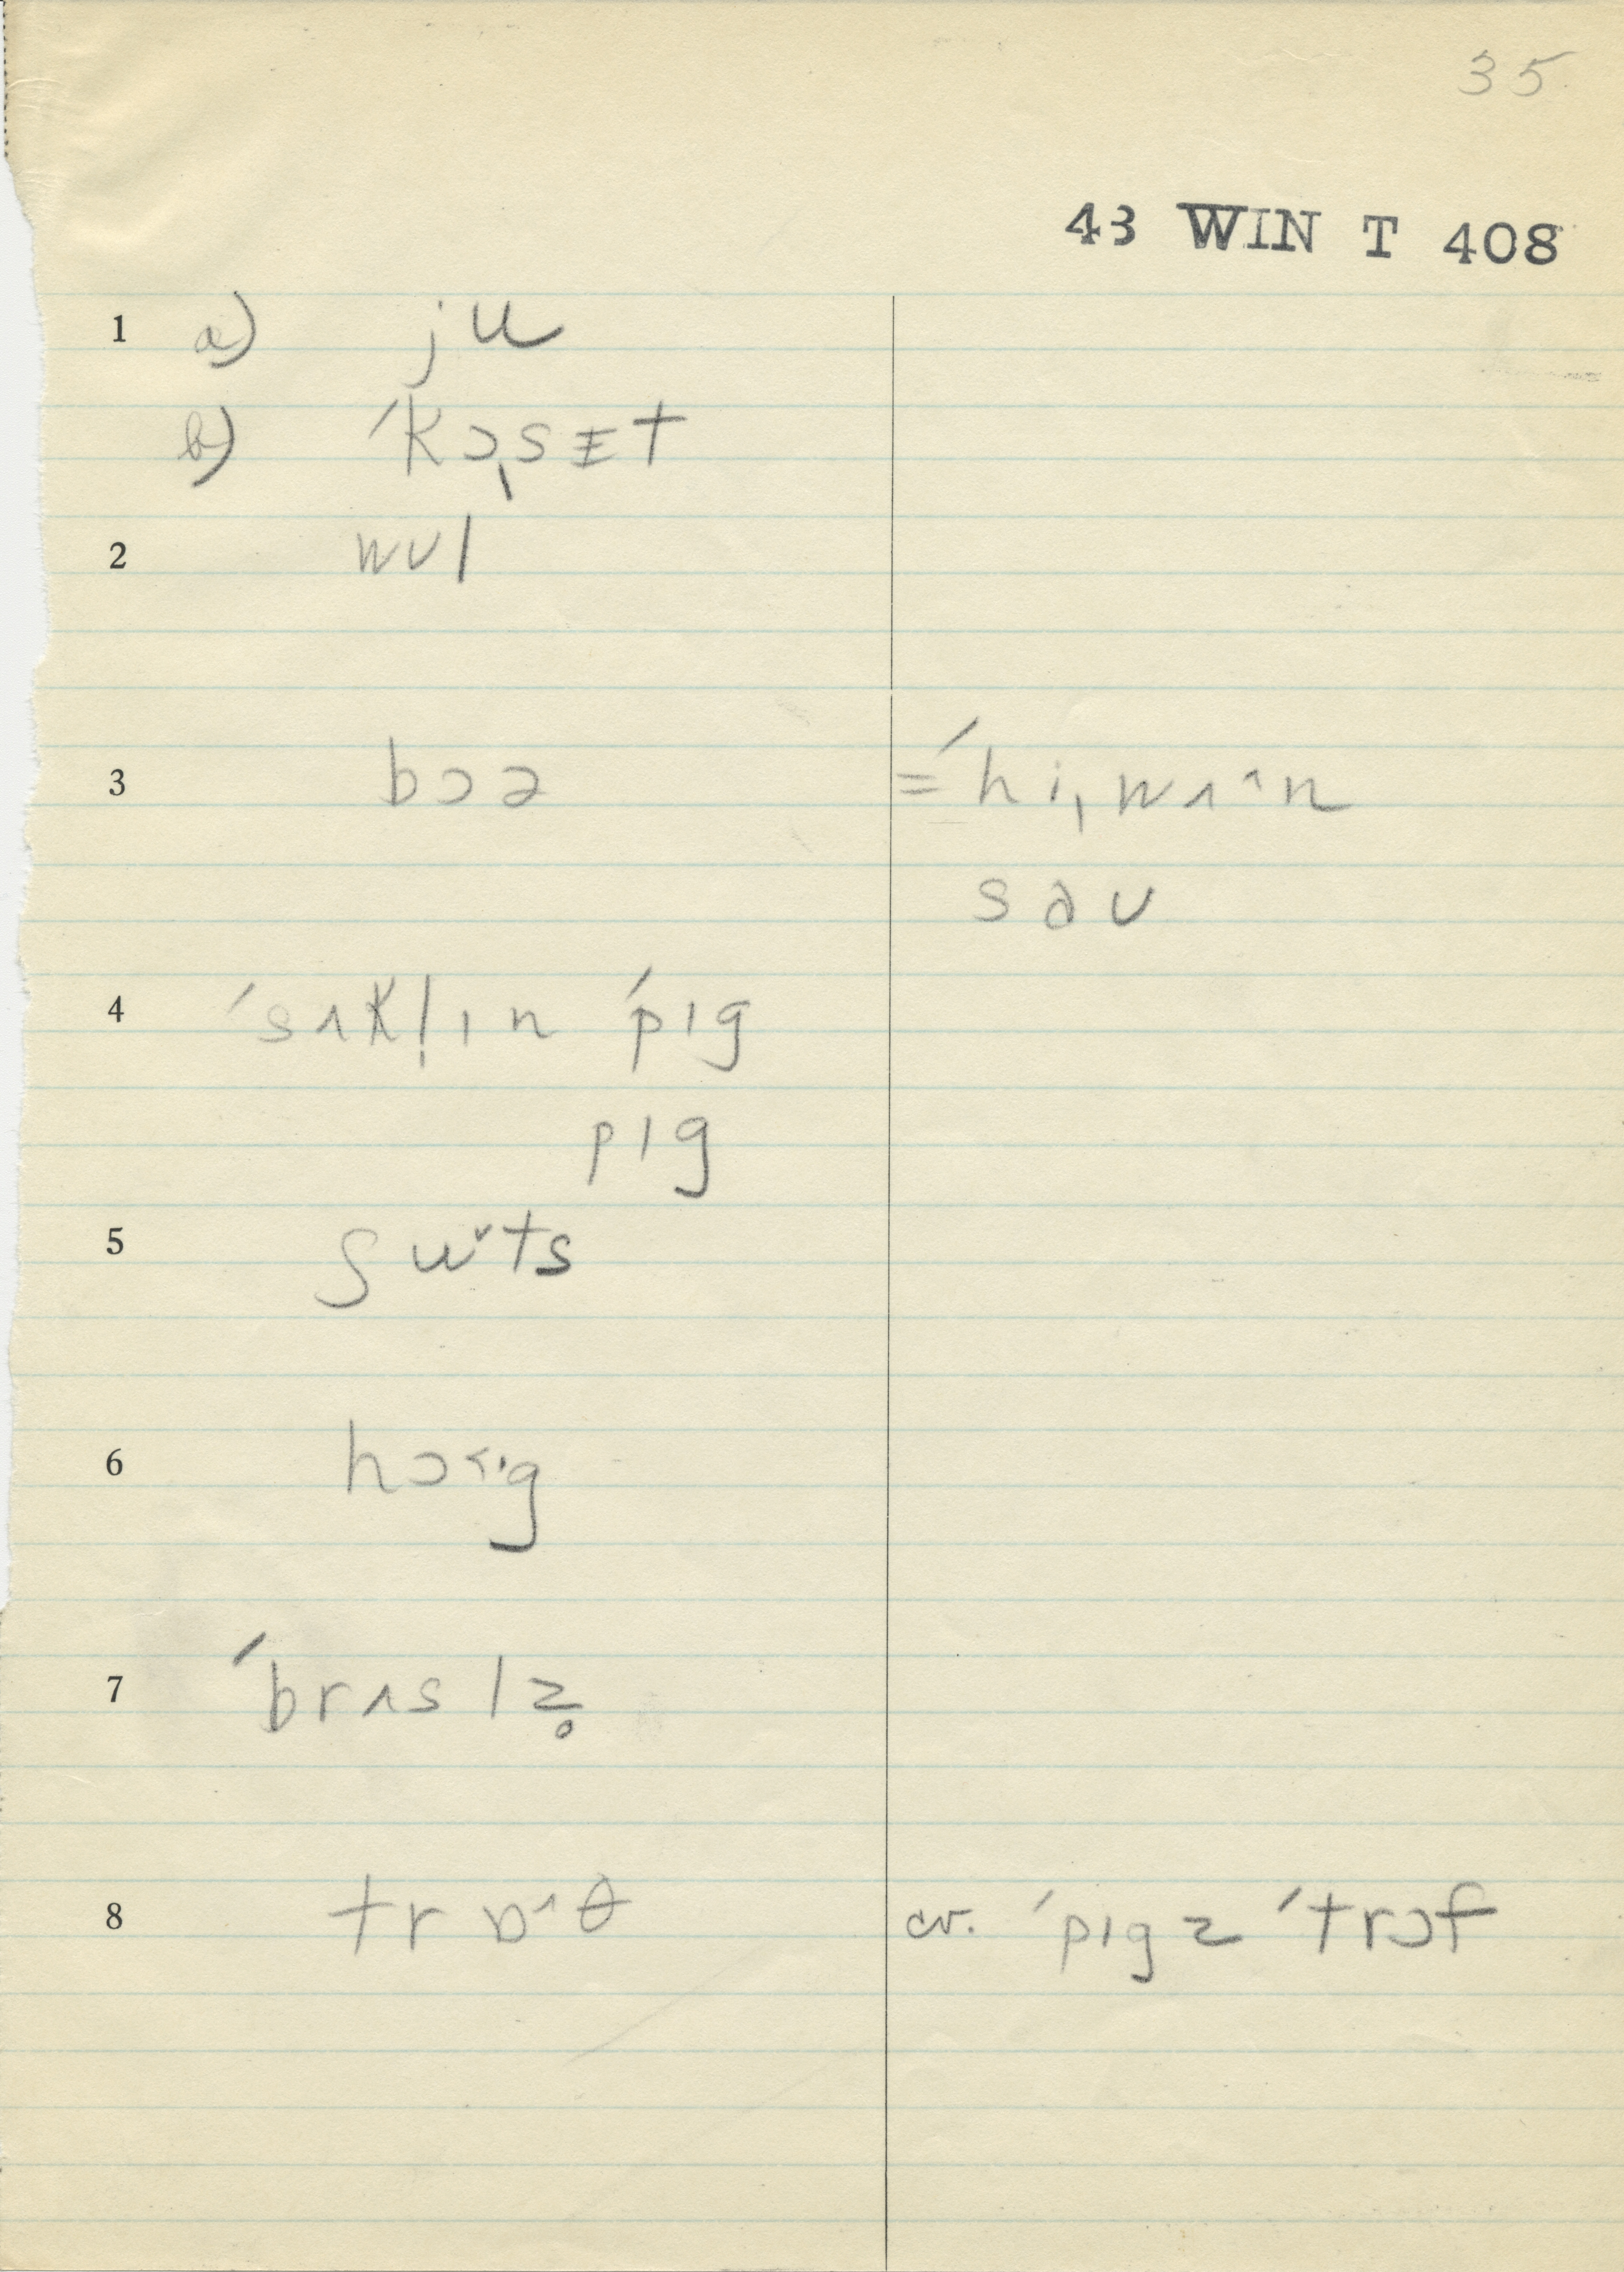 35
43 WIN T 408
1 a) ju
b) ˈkɔˌsɪ̵t
2 wʊl
3 bɔə =ˈhiˌwʌ^n
səʊ
4 ˈsʌkl̩ɪn ˈpɪg
pɪg
5 ʃuˇts
6 hɔ˂·g
7 ˈbrʌslz̥
8 trɒ^θ cv. ˈpɪgz ˈtrɔf